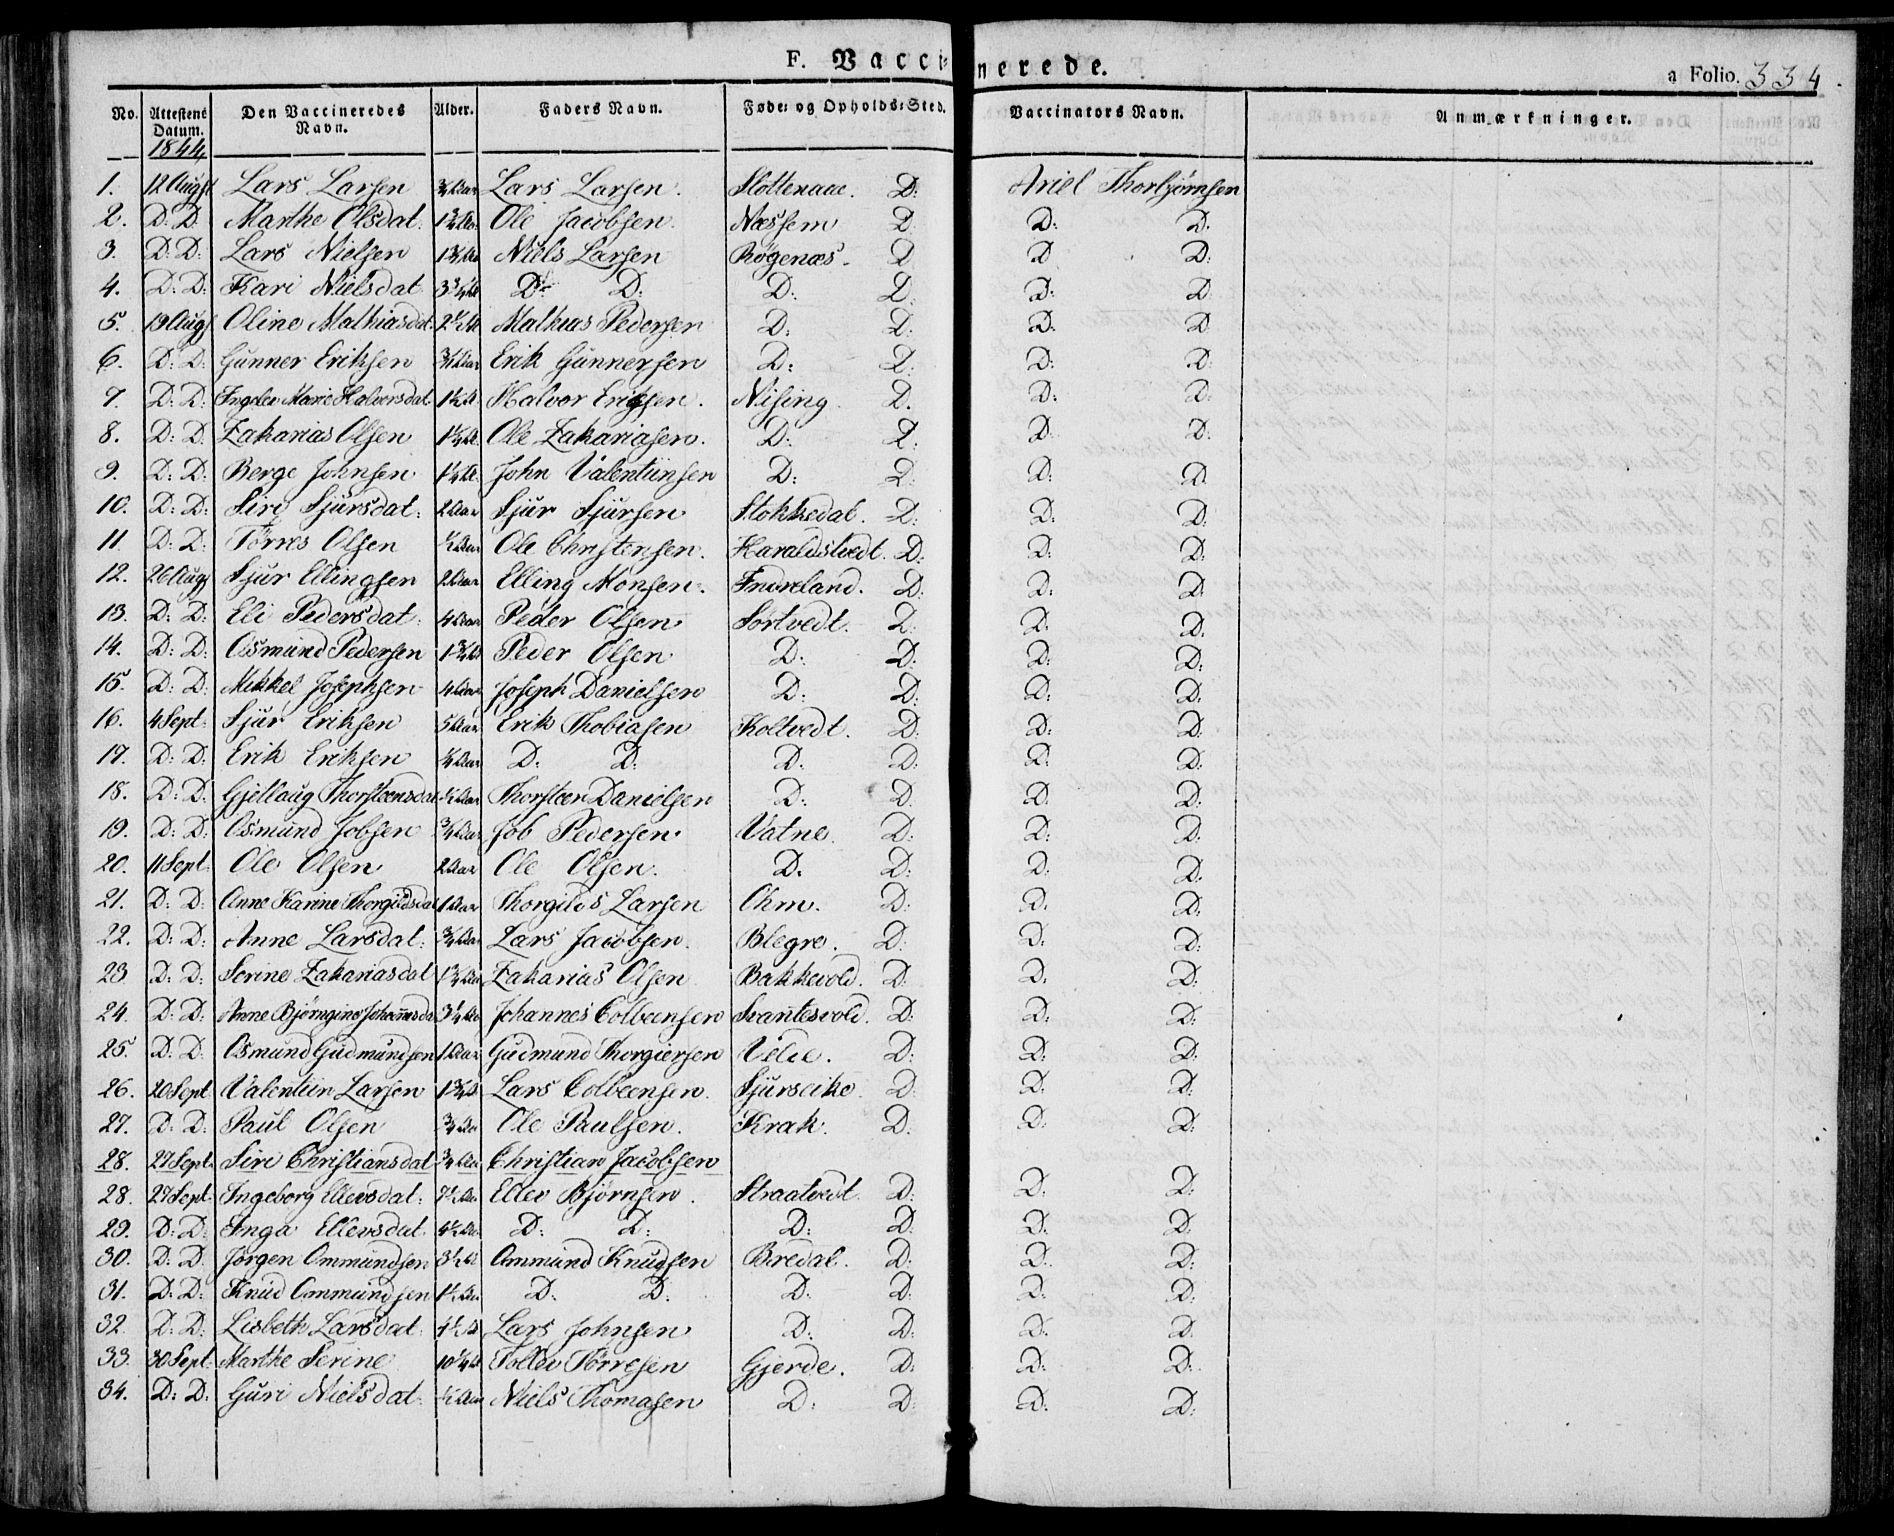 F. Vaccinerede.
a Folio. 334.
No. Attestens Datum. Den Vaccineredes Navn. Alder. Faders Navn. Føde- og Opholds-Sted. Vaccinators Navn. Anmærkninger.
1844
1. 12 Augst Lars Larsen ¾ Aar Lars Larsen. D: Ariel Thorbjörnsen
2. D: D: Marthe Olsdat: 1¾ Aar Ole Jacobsen. Næssem D: D: D:
3. D: D: Lars Nielsen 1¾ Aar Niels Larsen Røgenæs. D D D:
4. D: D: Kari Nielsdat 3¾ Aar D: D: D: D: D: D
5. 19 Aug Oline Mathiasdat 2½ A Mathias Pedersen D: D: D: D
6. D: D: Gunner Eriksen ¾ Aar Erik Gunnersen D: D: D: D:
7. D: D: Ingeler Marie Halversdat Halvor Eriksen. Nising D. D: D:
8. D: D: Zakarias Olsen Ole Zakariasen. D: D: D: D:
9. D: D: Berge Johnsen 1¼ A. John Valentiinsen D: D: D: D:
10. D: D: Siri Sjursdat: 2 Aar Sjur Sjursen Stokkedal. D: D: D:
11 D: D: Törres Olsen ½ Aar Ole Christensen. Haraldstvedt. D: D: D:
12. 26 Aug Sjur Ellingsen 2 Aar Elling Monsen. Indreland. D: D: D:
13. D: D: Eli Pedersdat: 4 Aar Peder Olsen Sörtvedt. D: D: D.
14. D: D: Osmund Pedersen 1¾ A Peder Olsen D: D: D: D:
15. D: D: Mikkel Josephsen 4 Aar Joseph Danielsen D: D: D: D:
16. 4 Sept: Sjur Eriksen 5 Aar Erik Thobiasen Koltvedt. D: D: D:
17. D: D: Erik Eriksen ¼ Aar D: D: D: D: D: D:
18. D: D: Gjellaug Thorsteensdat ½ Aar Thorsteen Danielsen D: D. D: D:
19. D: D: Osmund Jobsen ¾ Aar Job Pedersen. Vatne. D: D: D:
20. 11 Sept. Ole Olsen 2 Aar Ole Olsen. D. D: D. D:
21. D: D: Anne Karine Thorgildsdat 1 Aar Thorgilds Larsen Ohm. D: D. D:
22. D: D: Anne Larsdat: ¾ Aar Lars Jacobsen. Blegre. D: D. D:
23 D: D: Serine Zakariasdat 1¾ Aar Zakarias Olsen Bakkevold. D: D. D:
24. D: D: Anne Björngine Johannesda 3¼ Aar Johannes Colbeensen Svantesvold. D: D: D:
25. D: D: Osmund Gudmundsen 1 Aar Gudmund Thorgiersen Velde. D: D: D:
26. 20 Sept Valentiin Larsen 1¾ A Lars Colbeensen. Sjurseike. D: D. D:
27. D: D: Paul Olsen ¾ Aar Ole Paulsen. Krak. D. D. D:
28. 27 Sept Siri Christiansdat ¾ Aar Christian Jacobsen
28. 27 Sept Ingeborg Ellevsdat: 7½ Aar Ellev Björnsen. Straatvedt. D: D. D:
29. D: D: Inga Ellevsdat 4½ Aar D: D: D: D: D. D:
30. D: D: Jörgen Ommundsen 3½ A Ommund Knudsen Bredal. D: D: D:
31. D: D: Knud Ommundsen 1½ Aar D: D: D: D: D: D:
32. D: D: Lisbeth Larsdat. Lars Johnsen D: D: D. D.
33. 30 Sept. Marthe Serine 10¼ A Tollev Törresen Gjerde. D: D: D:
34. D: D: Guri Nielsdat: Niels Thomasen D: D: D: D: